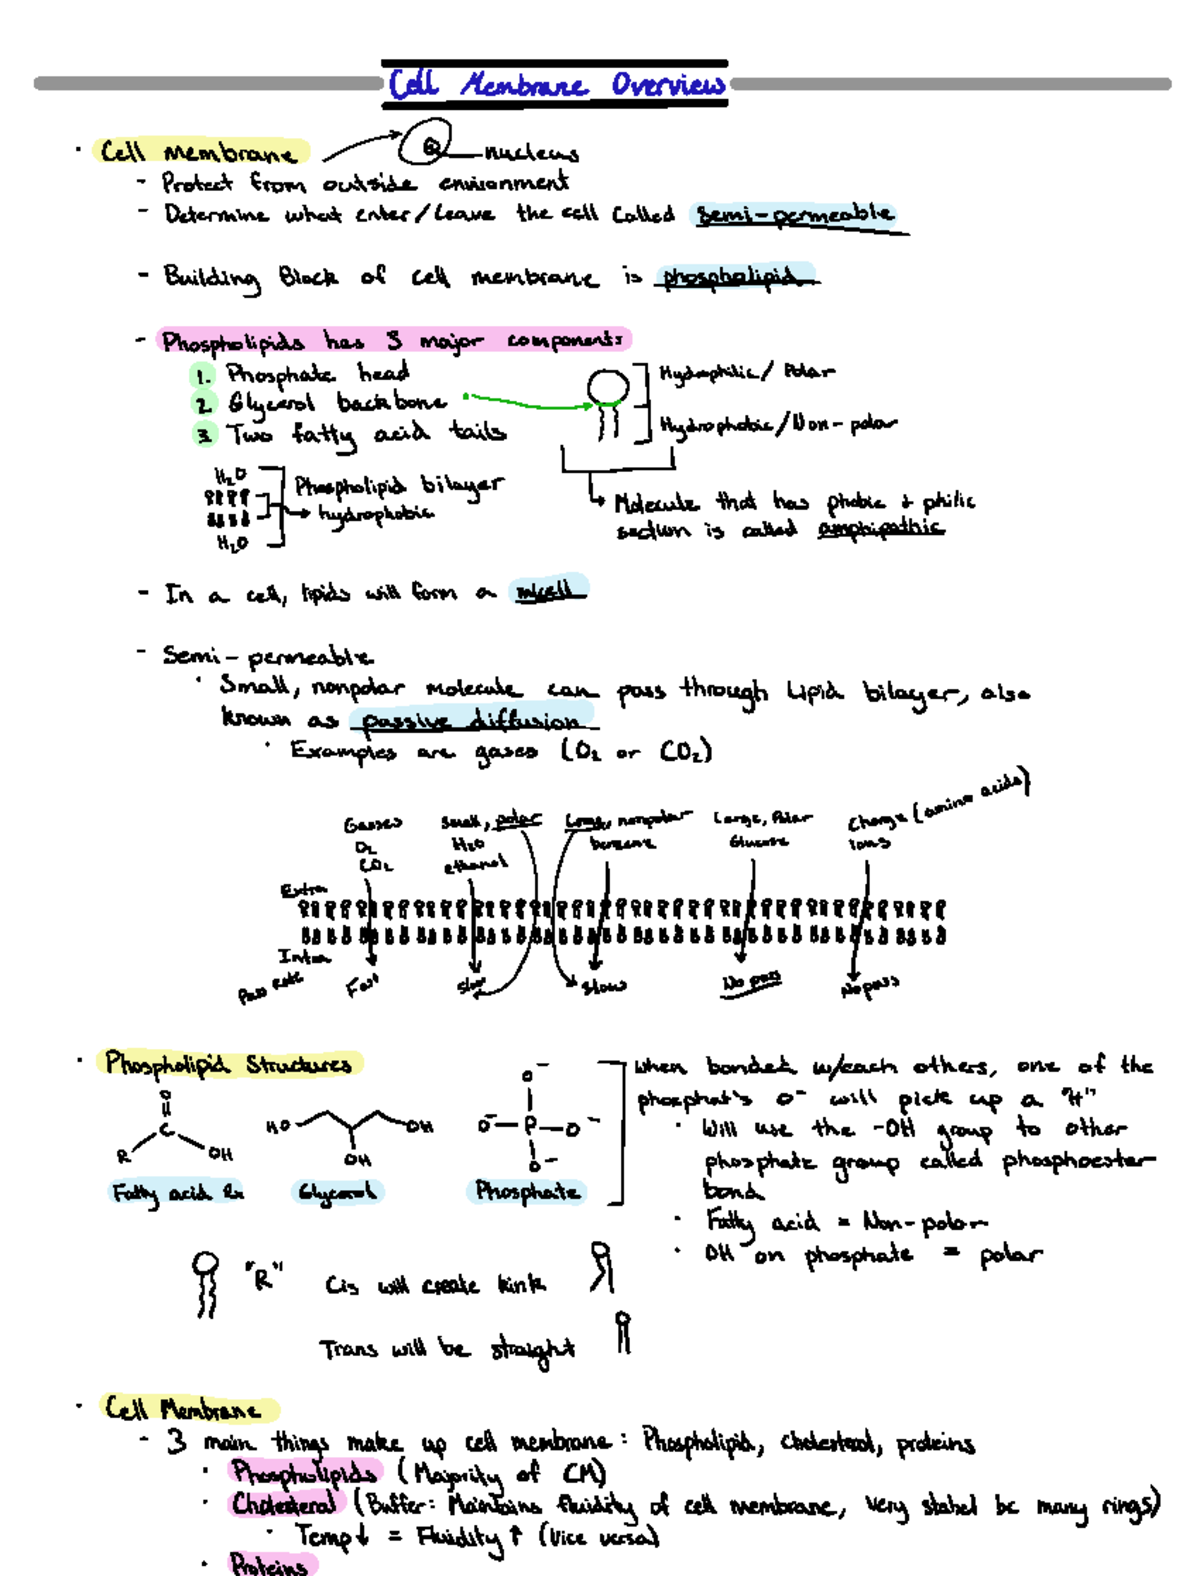 Cell Membrane Overview
· Cell membrane
nucleus
- Protect from outside environment
- Determine what enter/leave the cell called semi-permeable
- Building Block of cell membrane is phospholipid
- Phospholipids has 3 major components
1. Phosphate head
2. Glycerol backbone
3. Two fatty acid tails
Hydrophilic/Polar
Hydrophobic/Non-polar
H₂O
Phospholipid bilayer
hydrophobic
H₂O
Molecule that has phobic + philic
section is called amphipathic
- In a cell, lipids will form a micell
- Semi-permeable
· Small, nonpolar molecule can pass through Lipid bilayer, also
known as passive diffusion
· Examples are gases (O₂ or CO₂)
Gasses
O₂
CO₂
Small, polar
H₂O
ethanol
Large, nonpolar
benzene
Large, Polar
Glucose
Charge (amino acids)
ions
Extra
Intra
Pass rate
Fast
Slow
Slow
No pass
No pass
· Phospholipid Structures
O
C
R
OH
Fatty acid
HO
OH
OH
Glycerol
O⁻
O⁻ P O⁻
O⁻
Phosphate
When bonded w/each others, one of the
phosphat's O⁻ will pick up a "H"
· Will use the -OH group to other
phosphate group called phosphoester
bond
· Fatty acid = Non-polar
· OH on phosphate = polar
"R"
Cis will create kink
Trans will be straight
· Cell Membrane
- 3 main things make up cell membrane: Phospholipid, cholesterol, proteins
· Phospholipids (Majority of CM)
· Cholesteral (Buffer: Maintains fluidity of cell membrane, very stabel bc many rings)
· Temp↓ = Fluidity↑ (Vice versa)
· Proteins